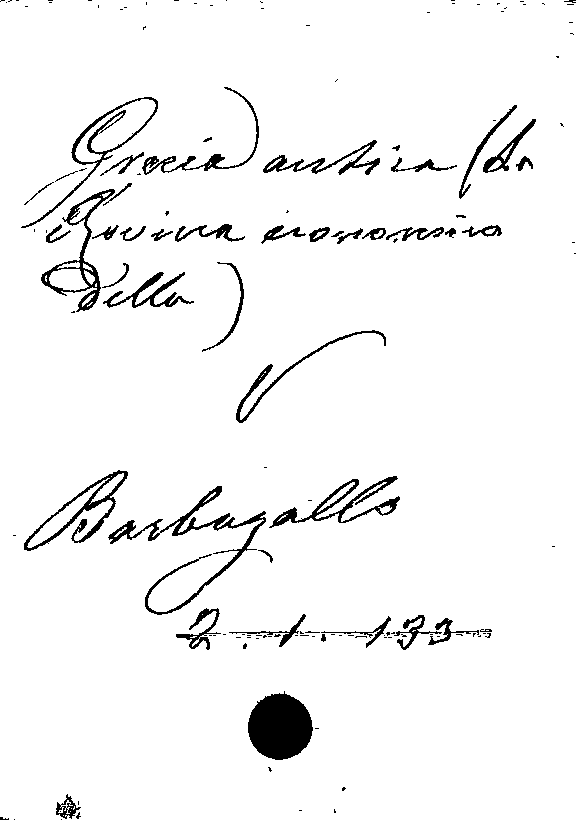 Grecia antica (La
Rovina economica
della)
V
Barbagallo
2.1.133